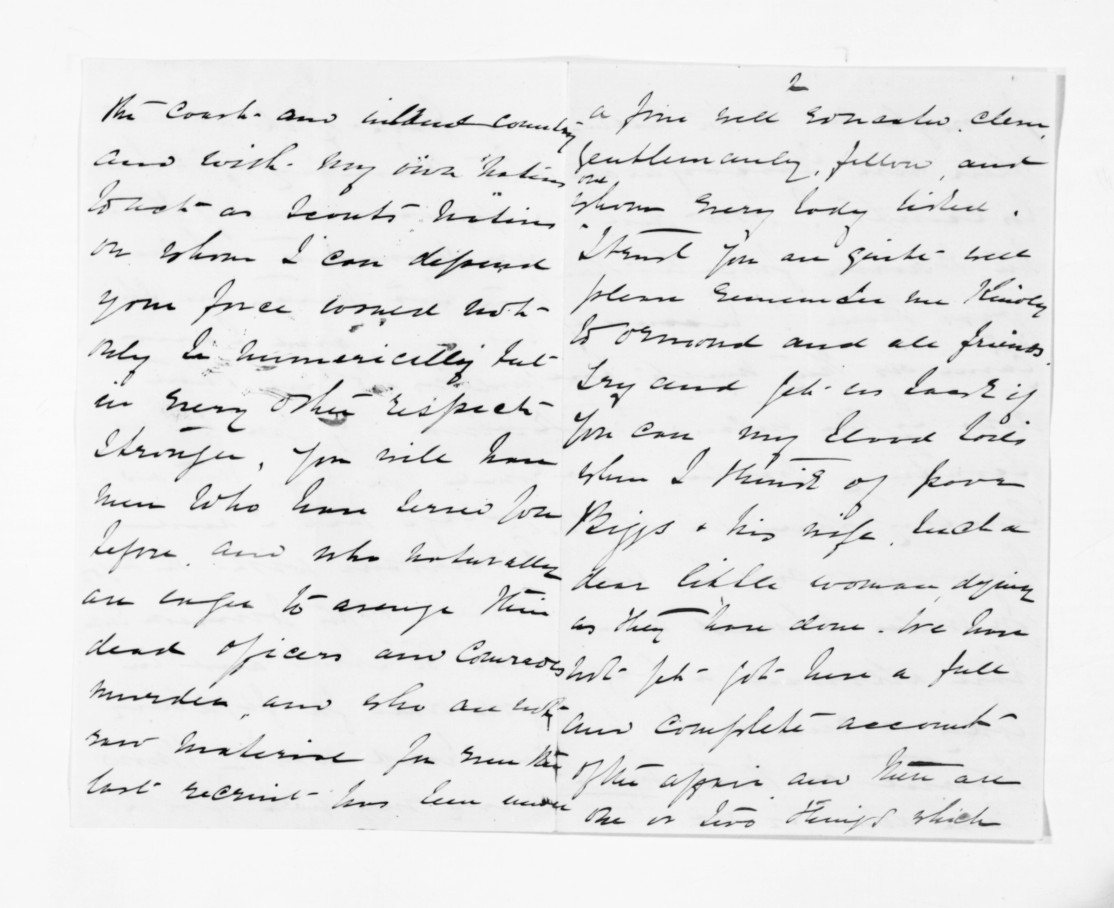 the coast and inland country
and with my own "natives
to act as scouts" natives
on whom I can depend
your force would not
only be numerically but
in every other respect
stronger, you will have
men who have served you
before, and who naturally
are eager to avenge their
dead officers and comrades
murder, and who are not
raw material for even the
last recruit has been under
2
a fine well educated, clever,
gentlemanly, fellow, and
one
whom every body liked.
I trust you are quite well
please remember me kindly
to Ormond and all friends.
Try and get us back if
you can my blood boils
when I think of poor
Biggs & his wife, such a
dear little woman, dying
as they have done. We have
not yet got here a full
and complete account
of the affair and there are
one or two things which